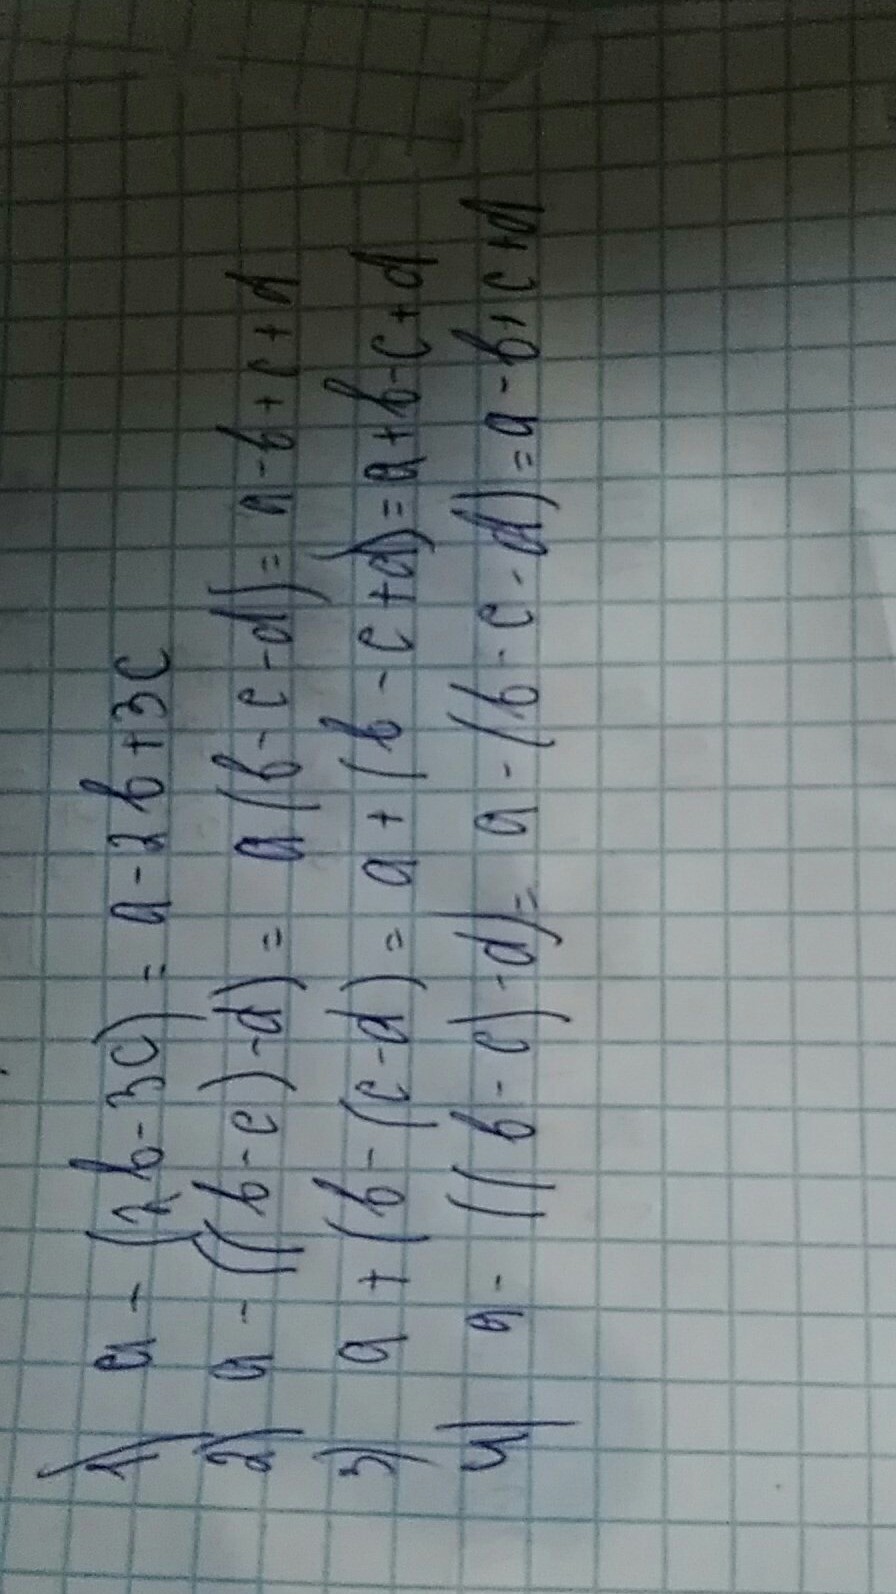 1) a - (2b - 3c) = a - 2b + 3c
2) a - ((b - c) - d) = a (b - c - d) = a - b + c + d
3) a + (b - (c - d) = a + (b - c + d) = a + b - c + d
4) a - ((b - c) - d) = a - (b - c - d) = a - b + c + d